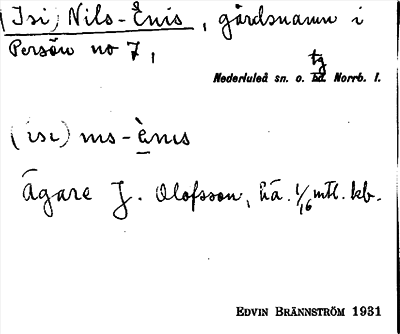 (Isi) Nils-Enis, gårdsnamn i
Persön no 7,
Nederluleå sn. o. tg hd. Norrb. l.
(isi) nis-ènis
Ägare J. Olofsson, hä. 1/16 mtl. kb.
EDVIN BRÄNNSTRÖM 1931